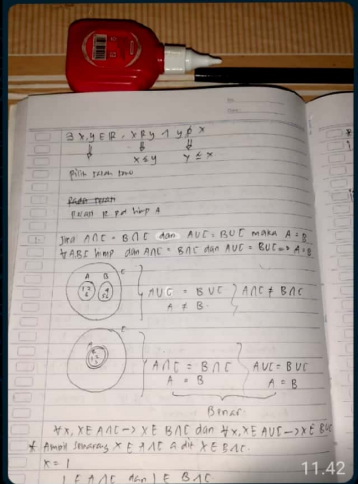 ∃ x, y ∈ R . x R y ∧ y R x
x ≤ y y ≤ x
pilih salah
relasi R pd himp A
1. Jika A∩C = B∩C dan A∪C = B∪C maka A = B
∀ A,B,C himp dan A∩C = B∩C dan A∪C = B∪C => A = B
A B E
A∪C = B∪C
A ≠ B
A∩C ≠ B∩C
E
A
A∩C = B∩C
A = B
A∪C = B∪C
A = B
Benar
∀x, x∈ A∩C → x ∈ B∩C dan ∀x, x∈ A∪C → x ∈ B∪C
* Ambil sembarang x ∈ A∩C a dit x ∈ B∩C.
x = 1
1 ∈ A∩C dan 1 ∈ B∩C.
11.42